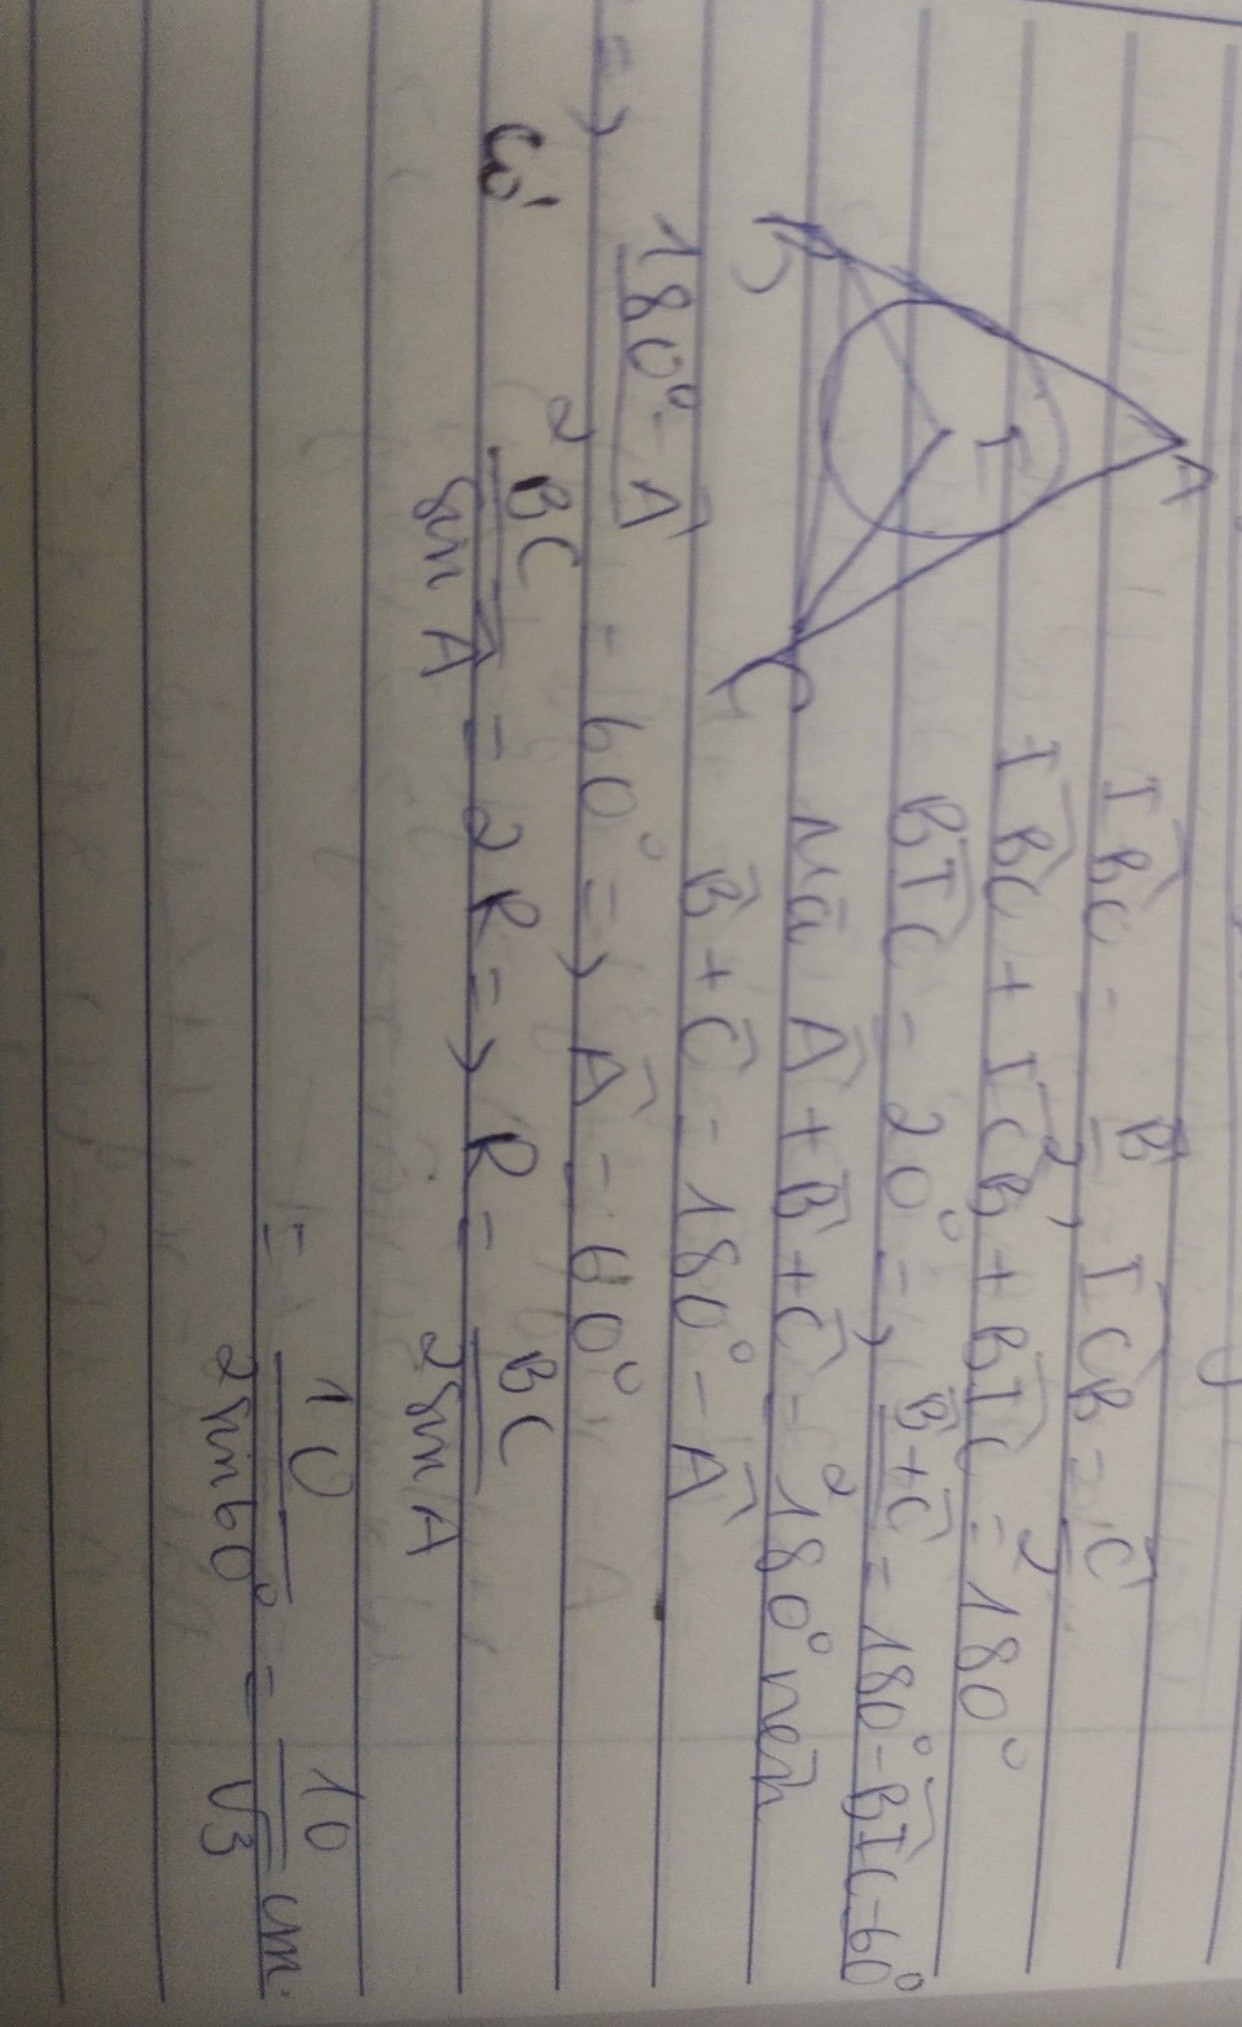 A
I
B
C
IBC = B/2, ICB = C/2
IBC + ICB + BIC = 180°
BIC = 20° => B+C/2 = 180° - BIC = 60°
Mà A + B + C = 180° nên
B + C = 180° - A
=> 180° - A/2 = 60° => A = 60°
Có BC/sin A = 2R => R = BC/2 sin A
= 10/2 sin 60° = 10/√3 cm.